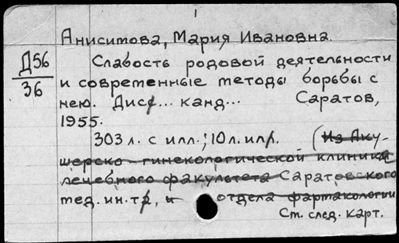 Анисимова, Мария Ивановна
Д56
36
Слабость родовой деятельности
и современные методы борьбы с
нею. Дисс... канд... Саратов,
1955.
303 л. с илл.; 10 л. илл. (Из Аку-
шерско-гинекологической клиники
лечебного факультета Саратовского
мед. ин-та, и отдела фармакологии
См. след. карт.